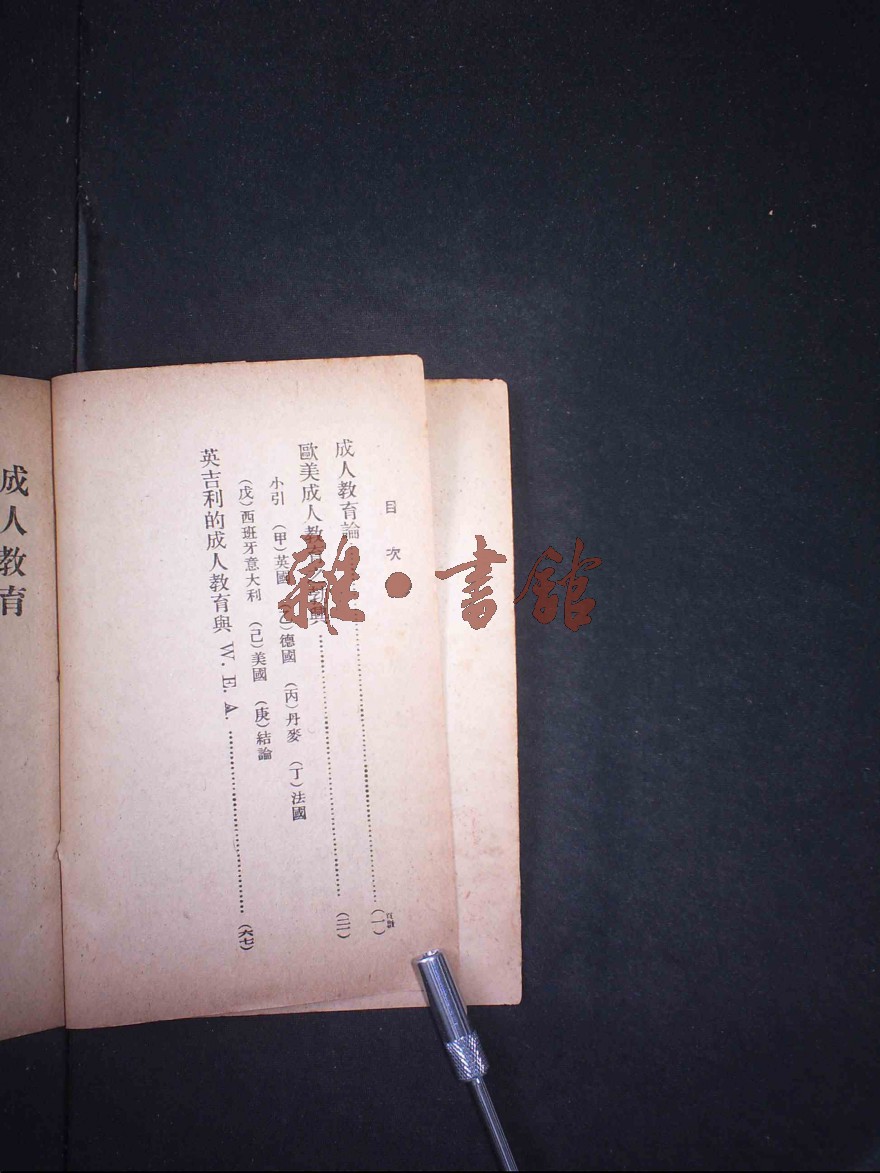 目次
頁數
成人教育論……（一）
歐美成人教育……（二一）
小引　（甲）英國　（乙）德國　（丙）丹麥　（丁）法國
（戊）西班牙意大利　（己）美國　（庚）結論
英吉利的成人教育與 W. E. A. ……（六七）
成人教育
雜·書館